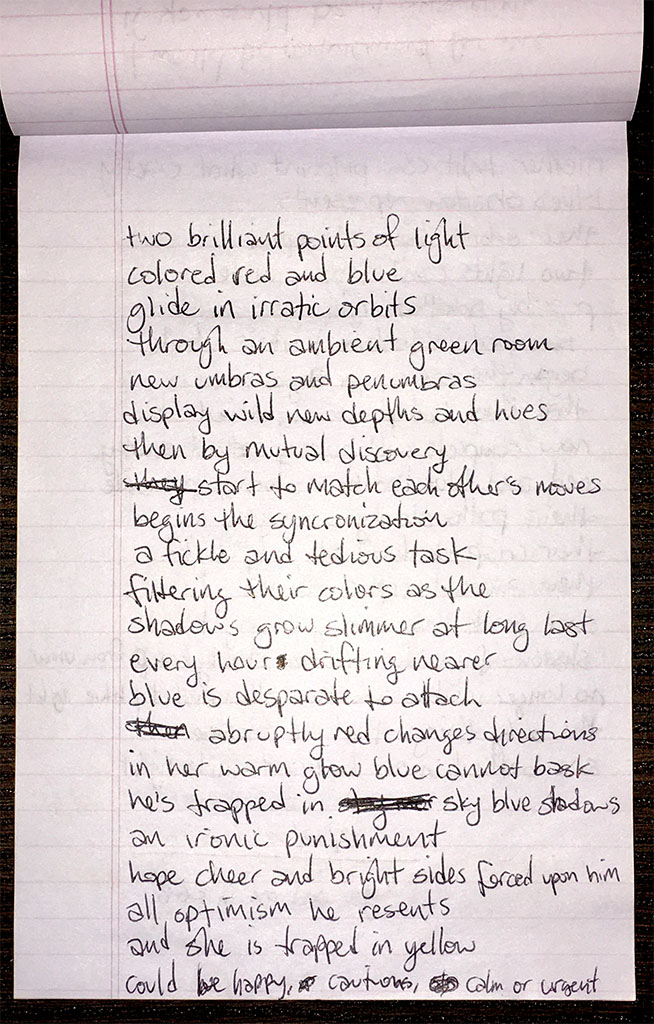 two brilliant points of light
colored red and blue
glide in irratic orbits
through an ambient green room
new umbras and penumbras
display wild new depths and hues
then by mutual discovery
they start to match each other's moves
begins the syncronization
a fickle and tedious task
filtering their colors as the
shadows grow slimmer at long last
every hour drifting nearer
blue is desparate to attach
then abruptly red changes directions
in her warm glow blue cannot bask
he's trapped in sky blue shadows
an ironic punishment
hope cheer and bright sides forced upon him
all optimism he resents
and she is trapped in yellow
could be happy, cautious, calm or urgent